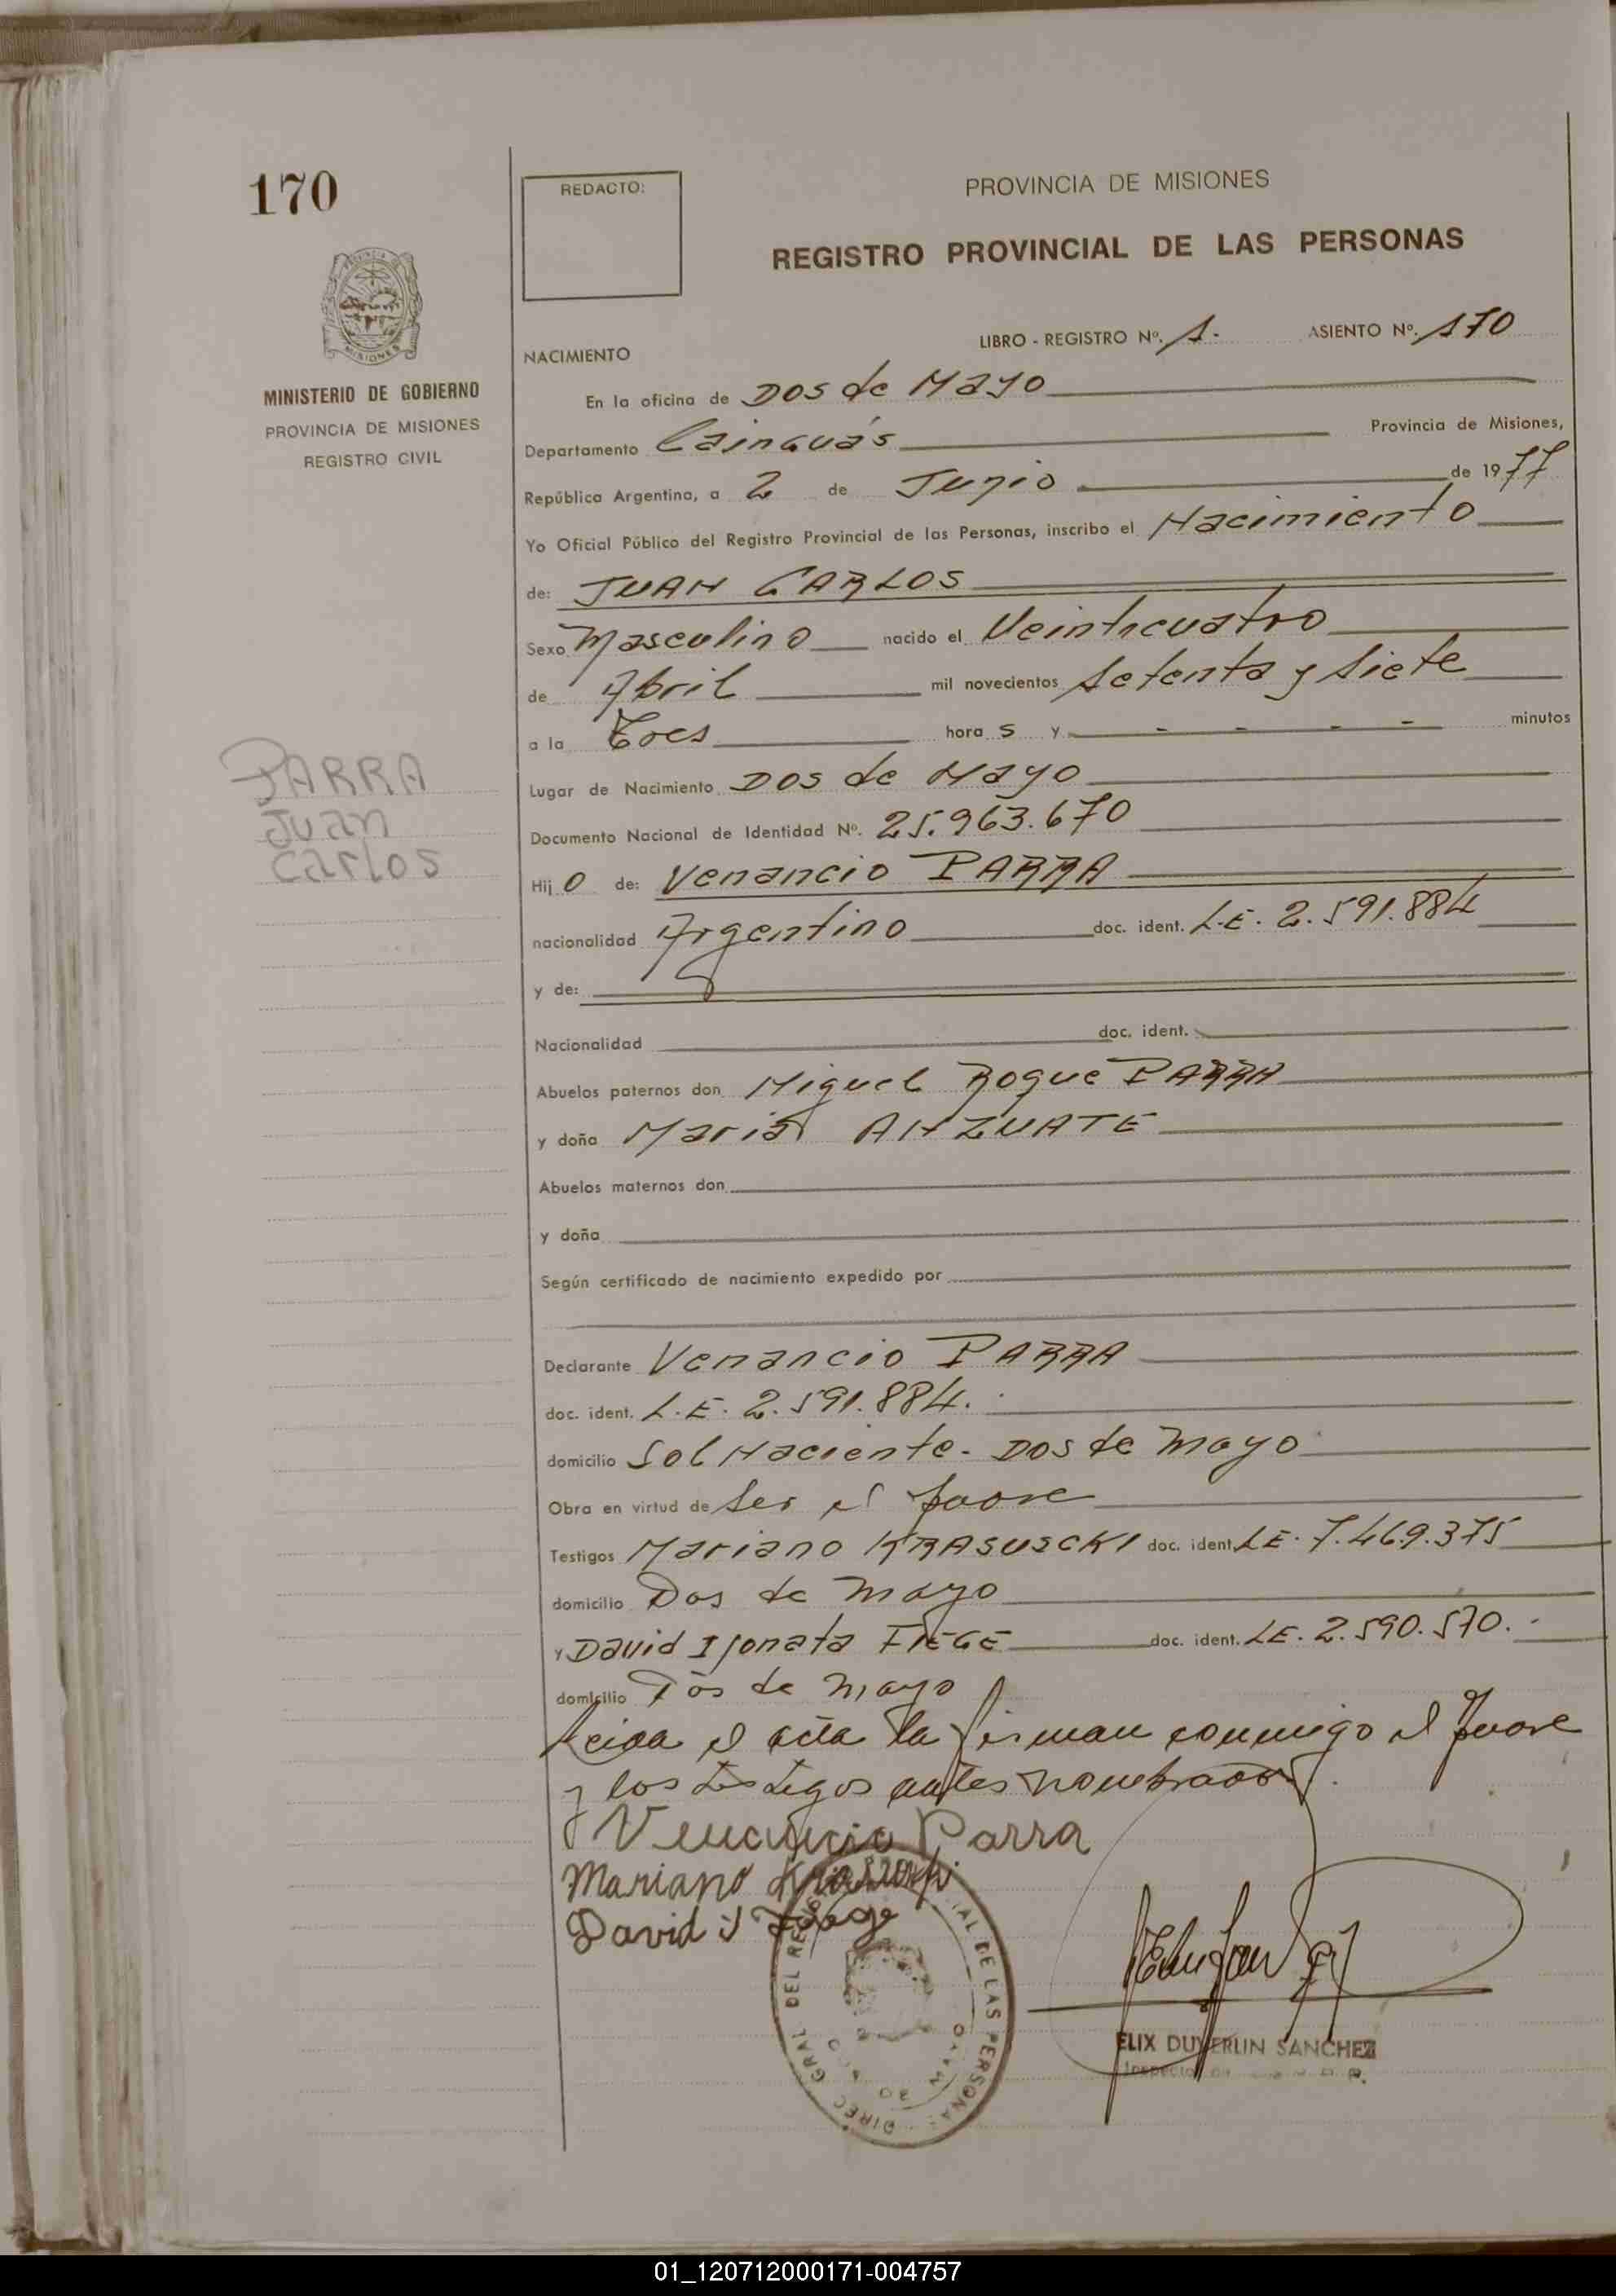 170
REDACTO:
PROVINCIA DE MISIONES
REGISTRO PROVINCIAL DE LAS PERSONAS
MISIONES
MINISTERIO DE GOBIERNO
PROVINCIA DE MISIONES
REGISTRO CIVIL
LIBRO - REGISTRO Nº. 1. ASIENTO Nº. 170
NACIMIENTO
En la oficina de Dos de Mayo
Departamento Cainguás Provincia de Misiones,
República Argentina, a 2 de Junio de 1977
Yo Oficial Público del Registro Provincial de las Personas, inscribo el Nacimiento
de: JUAN CARLOS
Sexo Masculino nacido el Veinticuatro
de Abril mil novecientos Setenta y Siete
a la Tres hora s y - - - - minutos
PARRA
Juan
Carlos
Lugar de Nacimiento Dos de Mayo
Documento Nacional de Identidad Nº. 25.963.670
Hij o de: Venancio PARRA
nacionalidad Argentino doc. ident. L.E. 2.591.884
y de:
Nacionalidad doc. ident.
Abuelos paternos don Miguel Roque PARRA
y doña Maria ANZUATE
Abuelos maternos don
y doña
Según certificado de nacimiento expedido por
Declarante Venancio PARRA
doc. ident. L.E. 2.591.884.
domicilio Sol Naciente - Dos de Mayo
Obra en virtud de Ser el Padre
Testigos Mariano KRASUSCKI doc. ident. LE. 7.469.375
domicilio Dos de Mayo
y David Ijonata FIEGE doc. ident. LE. 2.590.570.-
domicilio Dos de Mayo
Leida el acta la firman conmigo el Padre
y los testigos antes nombrados.
Venancio Parra
Mariano
David
DIREC GRAL DEL DE LAS PERSONAS
ELIX DUVERLIN SANCHEZ
01_120712000171-004757